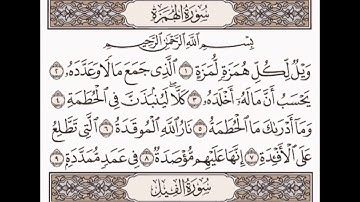 سُورَةُ الهُمَزَةِ
بِسْمِ اللَّهِ الرَّحْمَٰنِ الرَّحِيمِ
وَيْلٌ لِّكُلِّ هُمَزَةٍ لُّمَزَةٍ ١ الَّذِي جَمَعَ مَالًا وَعَدَّدَهُۥ ٢
يَحْسَبُ أَنَّ مَالَهُۥٓ أَخْلَدَهُۥ ٣ كَلَّا ۖ لَيُنۢبَذَنَّ فِي الْحُطَمَةِ ٤
وَمَآ أَدْرَىٰكَ مَا الْحُطَمَةُ ٥ نَارُ اللَّهِ الْمُوقَدَةُ ٦ الَّتِي تَطَّلِعُ
عَلَى الْأَفْـِٔدَةِ ٧ إِنَّهَا عَلَيْهِم مُّؤْصَدَةٌ ٨ فِي عَمَدٍ مُّمَدَّدَةٍۭ ٩
سُورَةُ الفِيلِ